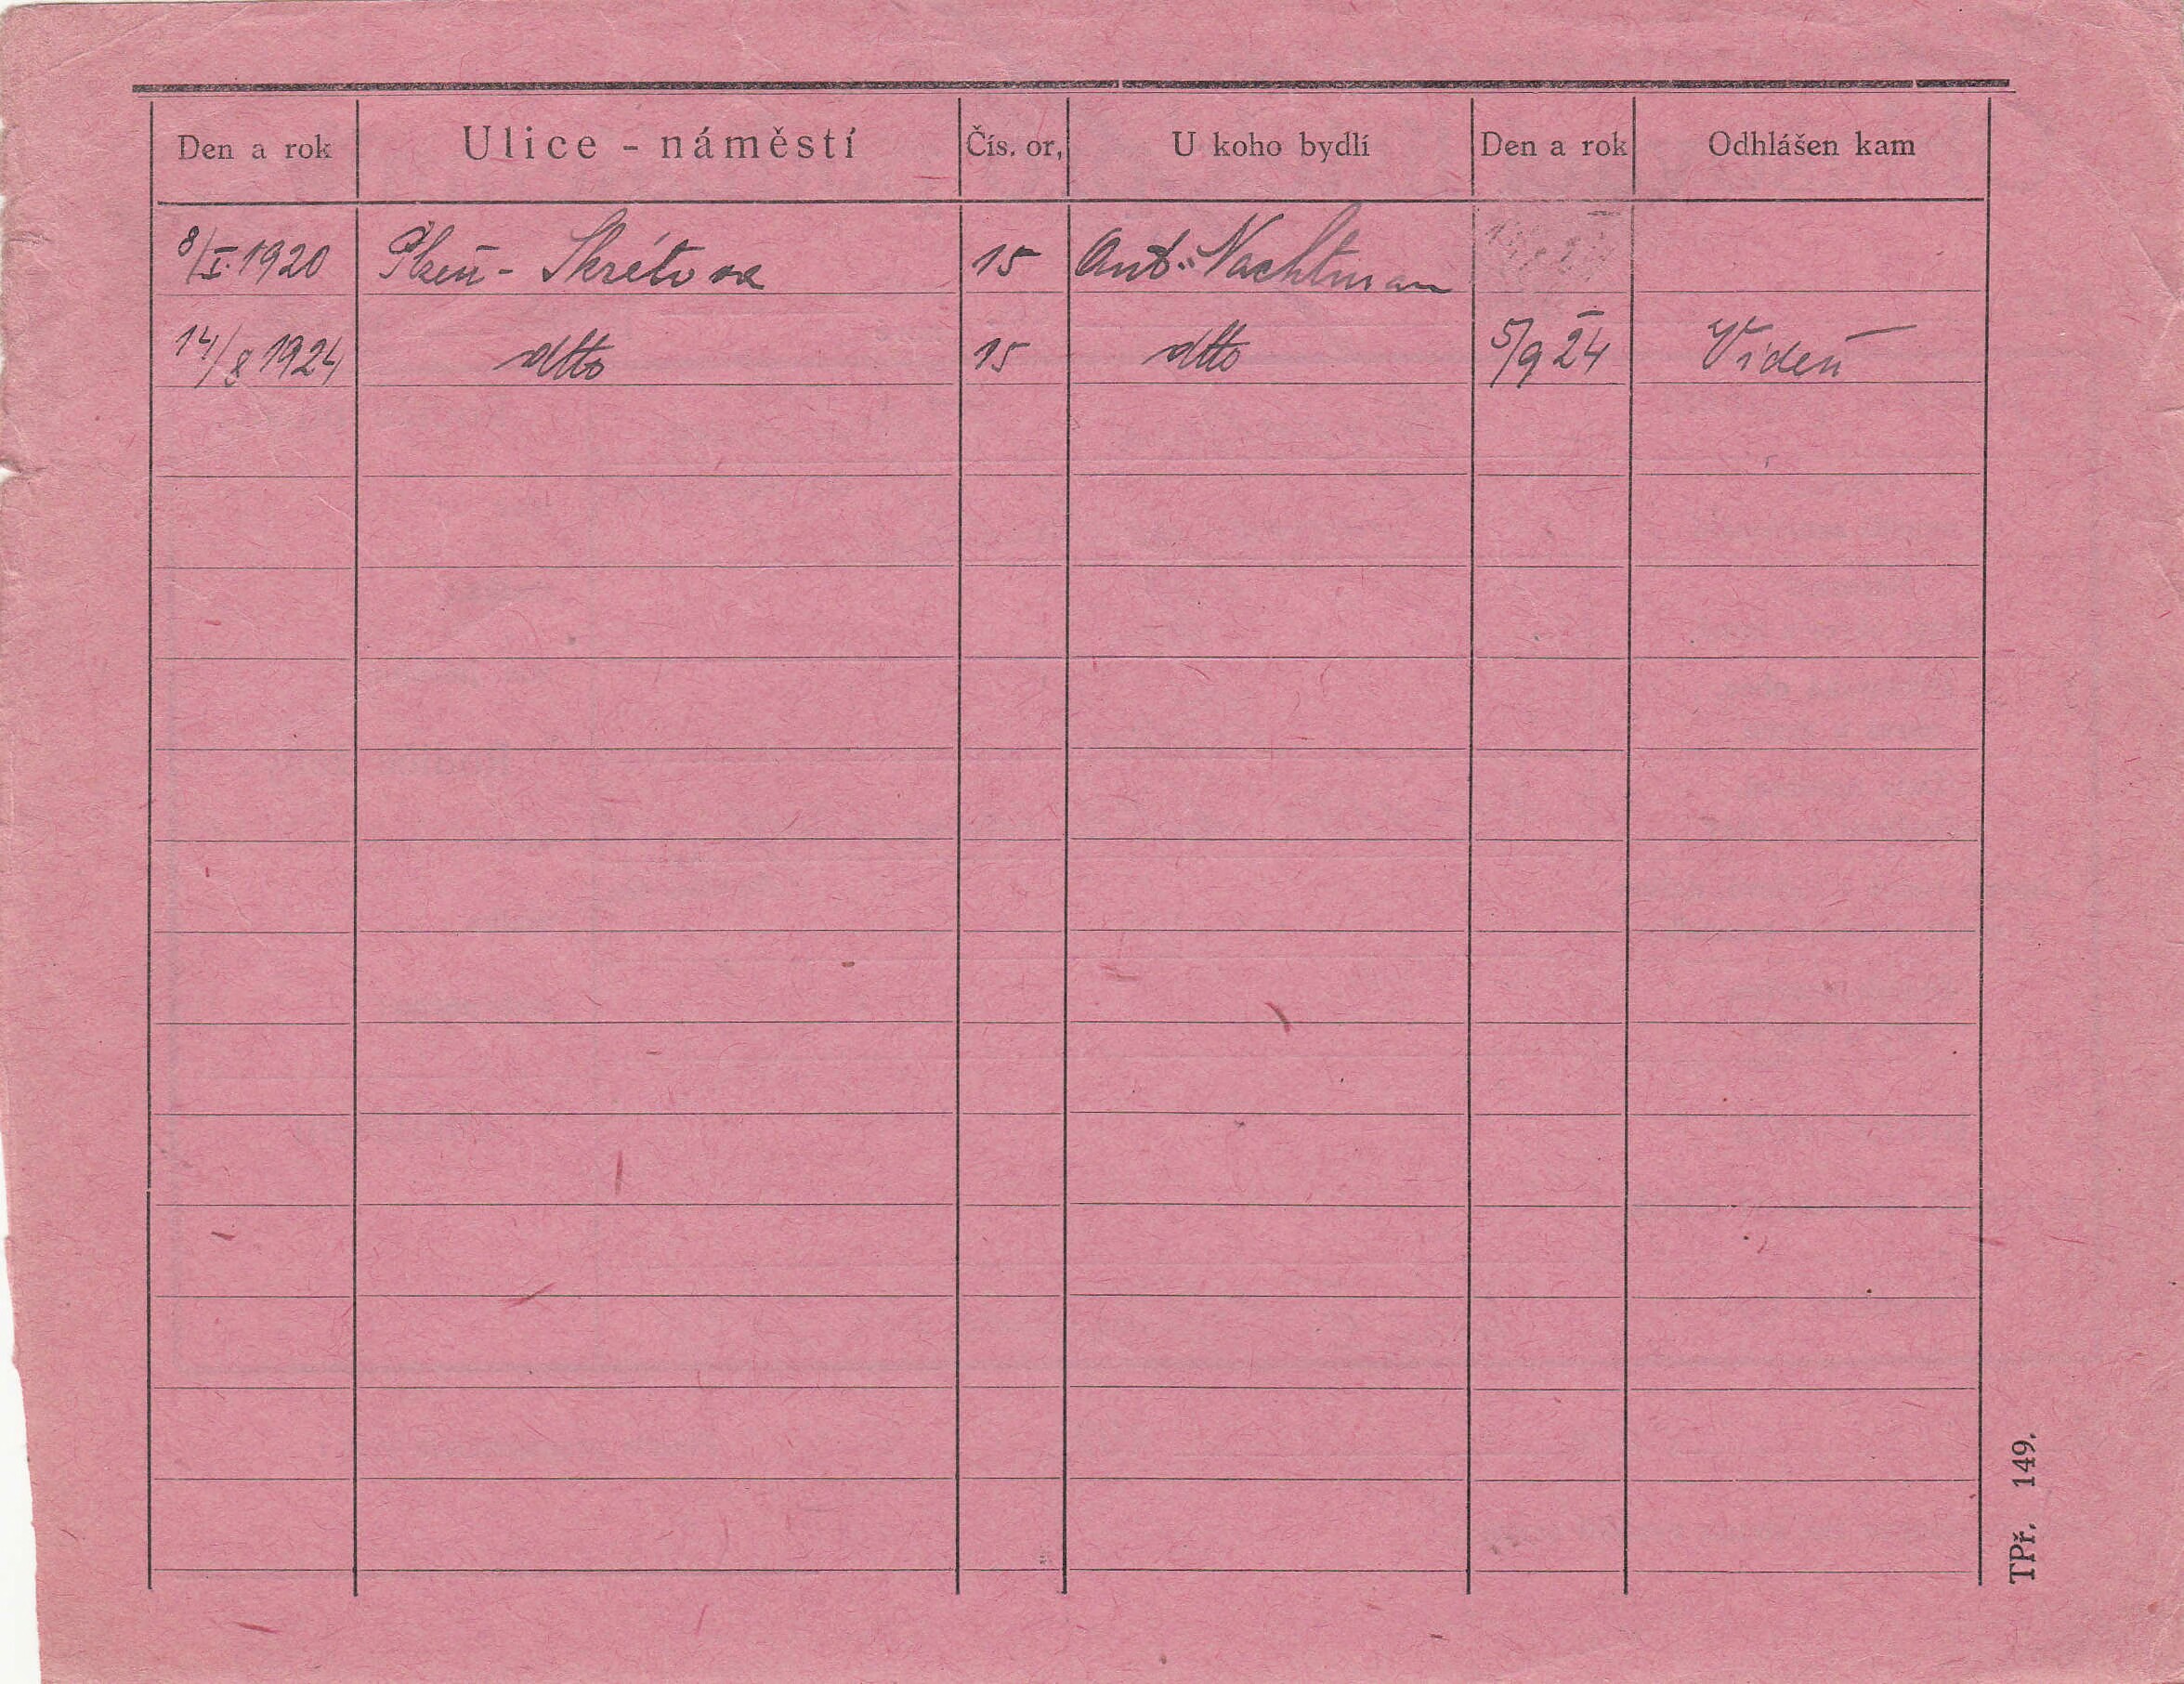 Den a rok Ulice - náměstí Čís. or, U koho bydlí Den a rok Odhlášen kam
8/I. 1920 Plzeň - Skrétova 15 Ant. Nachtman
14/8 1924 dtto 15 dtto 5/9 24 Videň
TPř. 149.